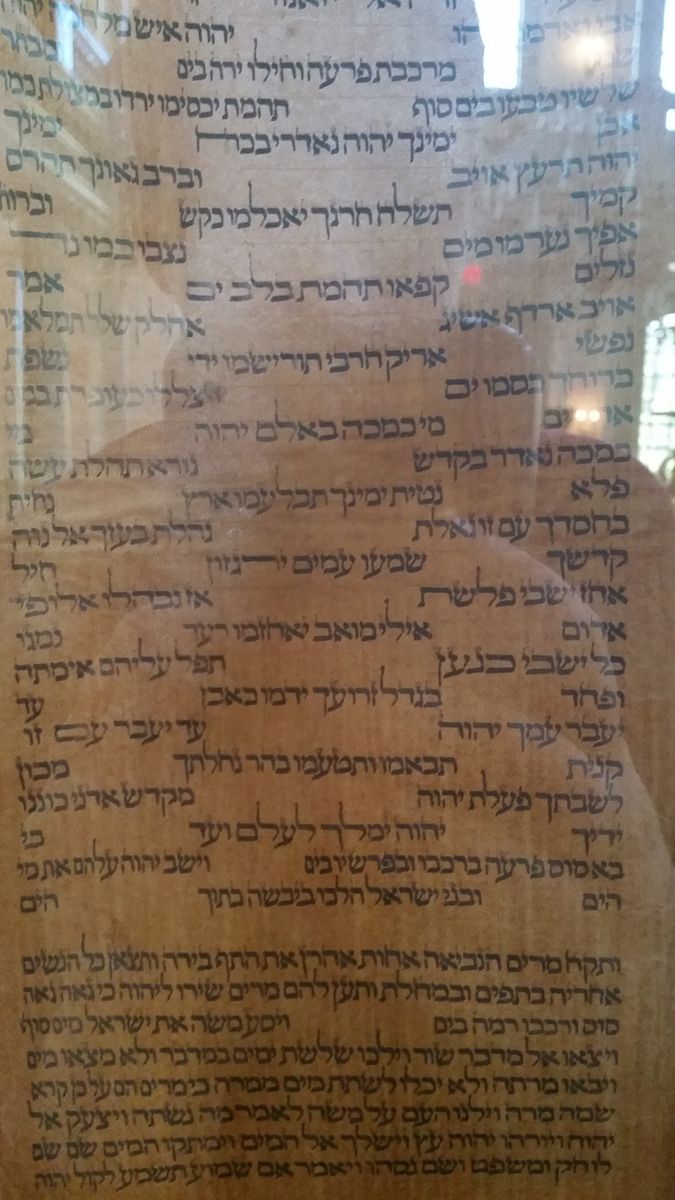 יהוה איש מלחמה יהוה
מרכבת פרעה וחילו ירה בים מבחר
שלשיו טבעו בים סוף תהמת יכסימו ירדו במצולת כמו
אבן ימינך יהוה נאדרי בכח ימינך
יהוה תרעץ אויב וברב גאונך תהרס
קמיך תשלח חרנך יאכלמו כקש וברוח
אפיך נערמו מים נצבו כמו נד
נזלים קפאו תהמת בלב ים אמר
אויב ארדף אשיג אחלק שלל תמלאמו
נפשי אריק חרבי תורישמו ידי נשפת
ברוחך כסמו ים צללו כעופרת במים
מי כמכה באלם יהוה מי
כמכה נאדר בקדש נורא תהלת עשה
פלא נטית ימינך תבלעמו ארץ נחית
בחסדך עם זו גאלת נהלת בעזך אל נוה
קדשך שמעו עמים ירגזון חיל
אחז ישבי פלשת אז נבהלו אלופי
אדום אילי מואב יאחזמו רעד נמגו
כל ישבי כנען תפל עליהם אימתה
ופחד בגדל זרועך ידמו כאבן עד
יעבר עמך יהוה עד יעבר עם זו
קנית תבאמו ותטעמו בהר נחלתך מכון
לשבתך פעלת יהוה מקדש אדני כוננו
ידיך יהוה ימלך לעלם ועד כי
בא סוס פרעה ברכבו ובפרשיו בים וישב יהוה עלהם את מי
הים ובני ישראל הלכו ביבשה בתוך הים
ותקח מרים הנביאה אחות אהרן את התף בידה ותצאן כל הנשים
אחריה בתפים ובמחלת ותען להם מרים שירו ליהוה כי גאה גאה
סוס ורכבו רמה בים ויסע משה את ישראל מים סוף
ויצאו אל מדבר שור וילכו שלשת ימים במדבר ולא מצאו מים
ויבאו מרתה ולא יכלו לשתת מים ממרה כי מרים הם על כן קרא
שמה מרה וילנו העם על משה לאמר מה נשתה ויצעק אל
יהוה ויורהו יהוה עץ וישלך אל המים וימתקו המים שם שם
לו חק ומשפט ושם נסהו ויאמר אם שמוע תשמע לקול יהוה